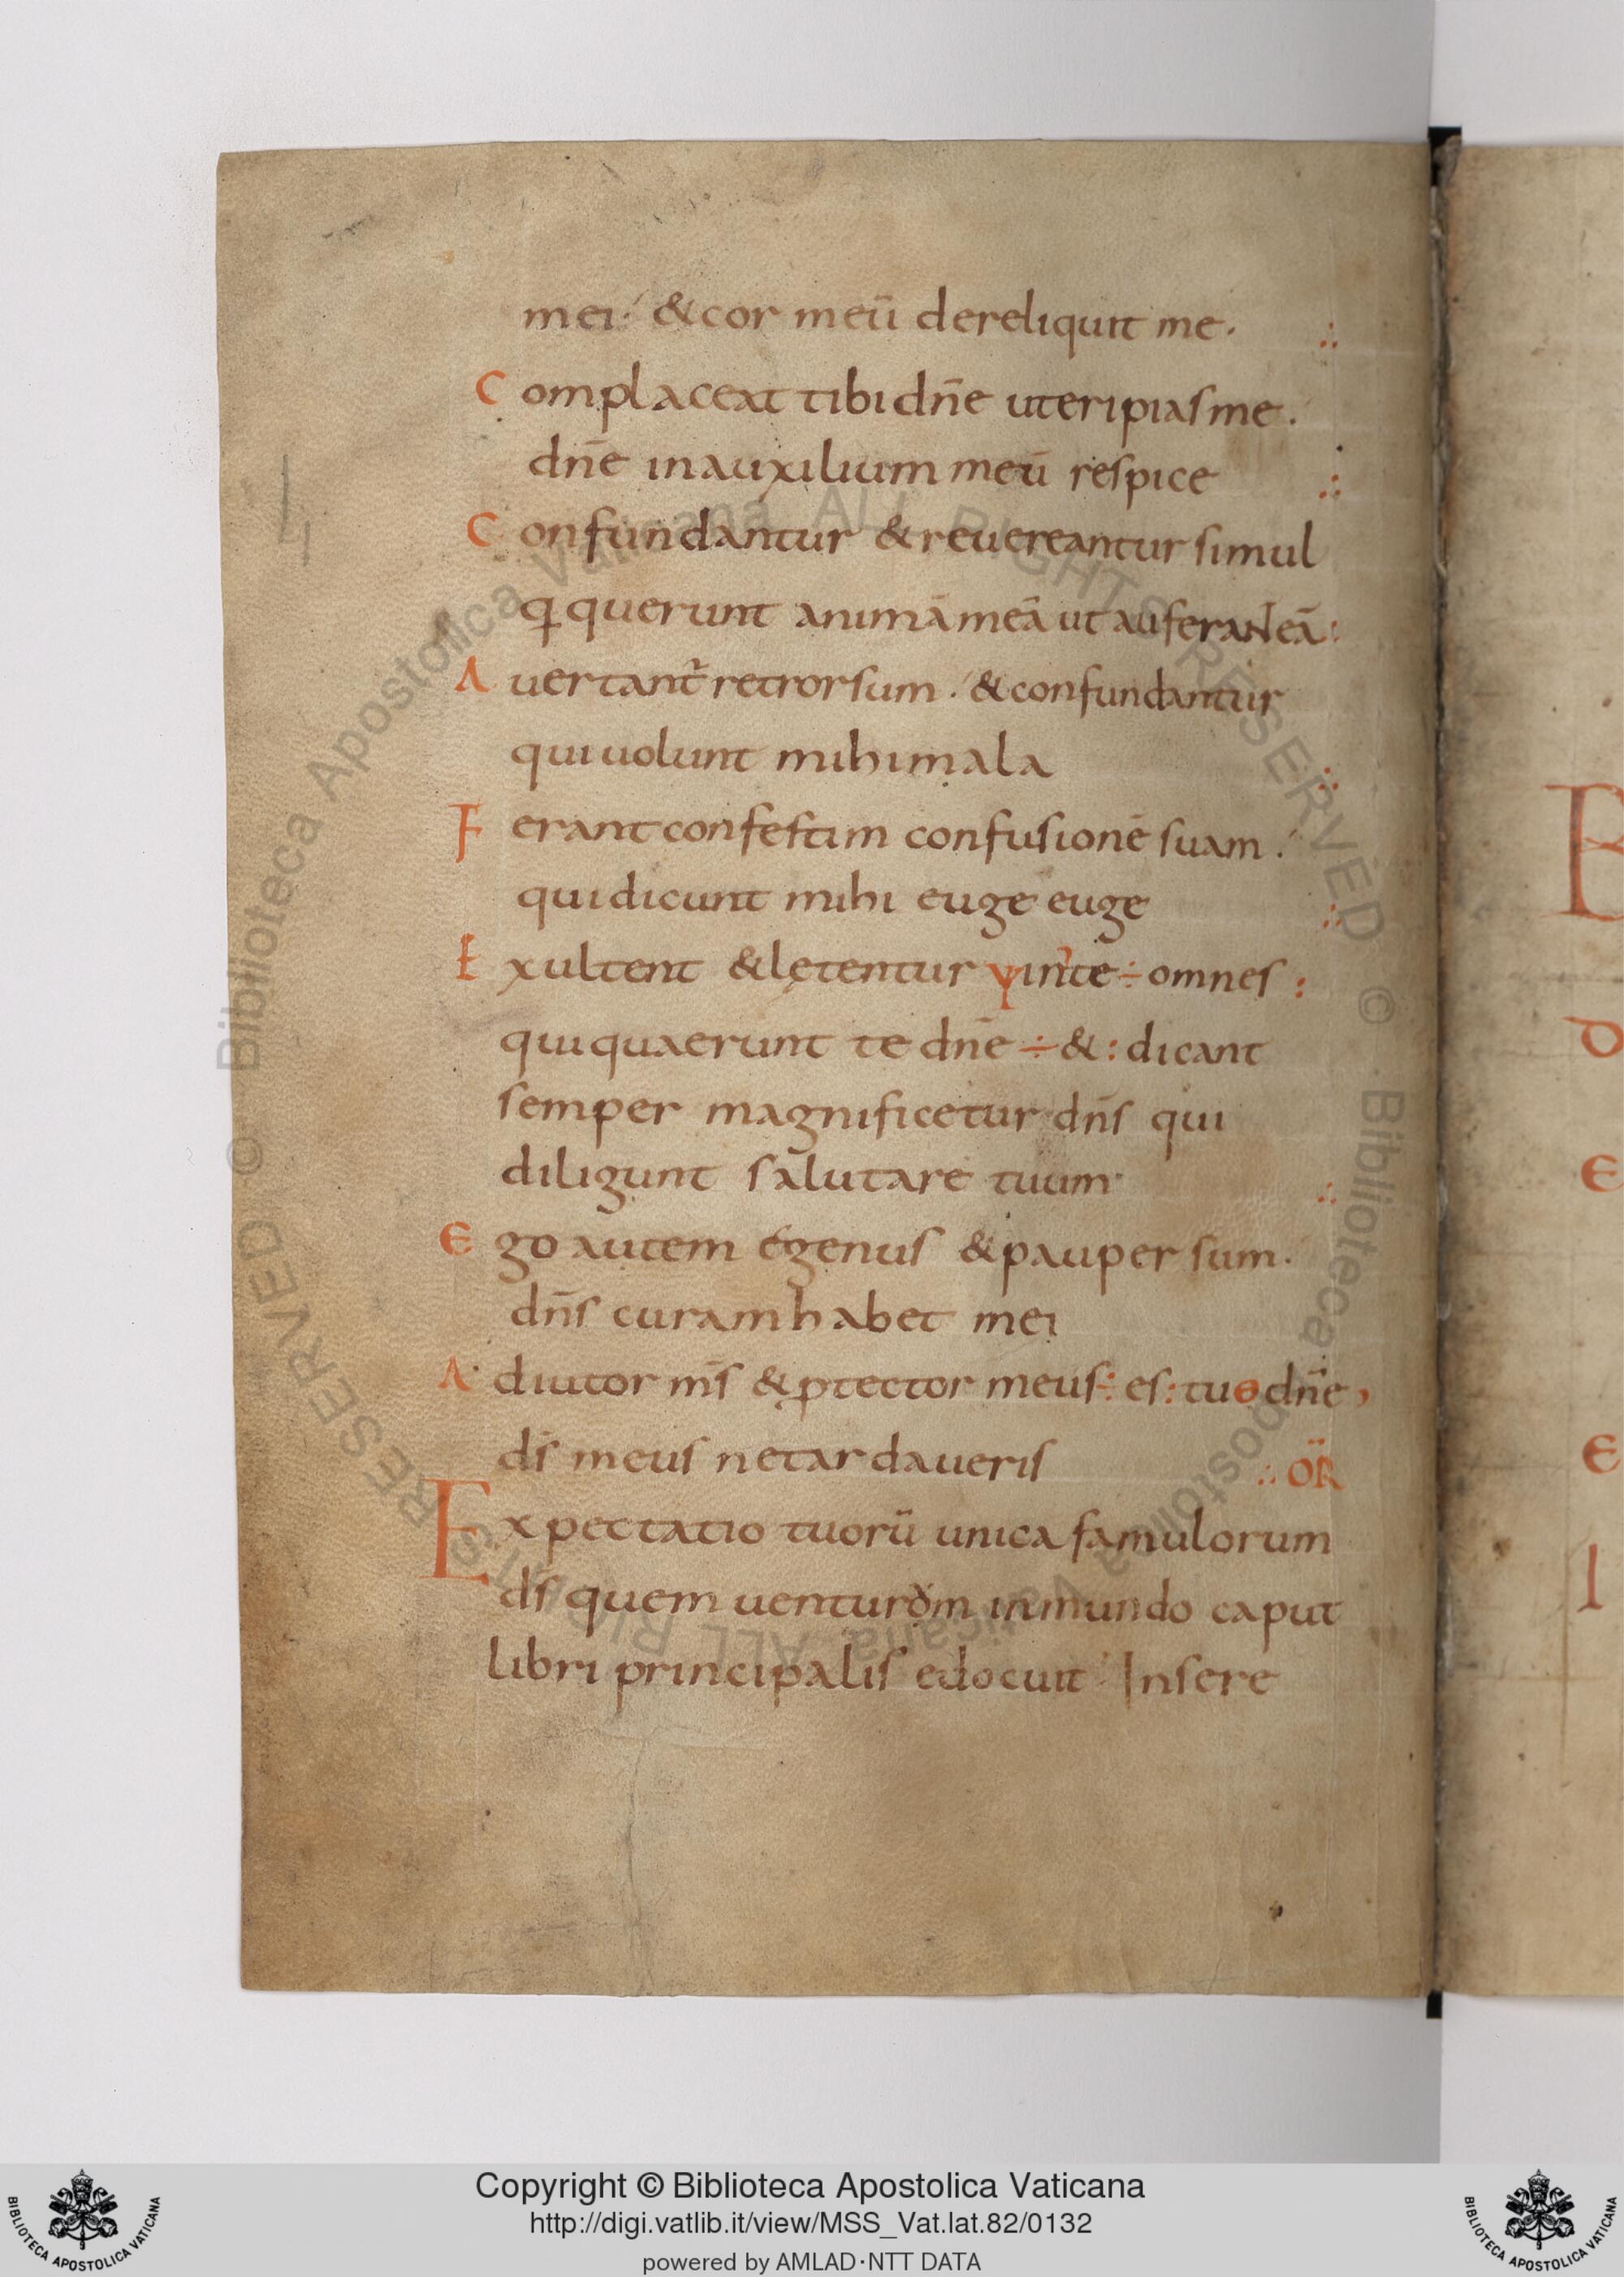 mei· & cor meū dereliquit me· ∴
Complaceat tibi dn̄e ut eripias me·
dn̄e in auxilium meū respice ∴
Confundantur & reuereantur simul
q querunt animā meā ut auferant eā:
Auertant̄ retrorsum· & confundantur
qui uolunt mihi mala ∴
Ferant confestim confusionē suam·
qui dicunt mihi euge euge ∴
Exultent & lętentur in te ÷ omnes :
qui quaerunt te dn̄e ÷ & : dicant
semper magnificetur dn̄s qui
diligunt salutare tuum· ∴
Ego autem egenus & pauper sum·
dn̄s curam habet mei
Adiutor m̄s & ptector meus ÷ es : tu dn̄e
d̄s meus ne tardaueris ∴ OR̄
Expectatio tuorū unica famulorum
d̄s quem uenturūm in mundo caput
libri principalis edocuit· Insere
© Biblioteca Apostolica Vaticana ALL RIGHTS RESERVED © Biblioteca Apostolica Vaticana ALL RIGHTS RESERVED
Copyright © Biblioteca Apostolica Vaticana
http://digi.vatlib.it/view/MSS_Vat.lat.82/0132
powered by AMLAD·NTT DATA
BIBLIOTECA APOSTOLICA VATICANA
BIBLIOTECA APOSTOLICA VATICANA